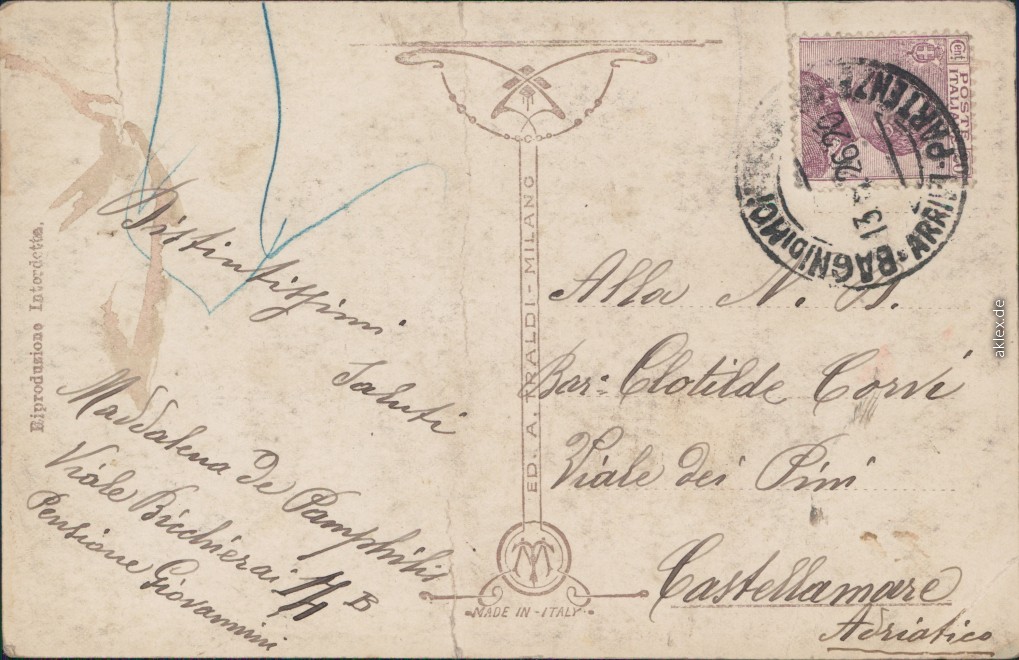 Distintissimi
Saluti
Maddalena De Pamphilis
Viale Bicchierai
B
Pensione Giovannini
Riprodusione Interdetta.
ED. A. TRALDI - MILANO
MADE IN - ITALY
Alla N. D.
Bar: Clotilde Corvi
Viale dei Pini
Castellamare
Adriatico
Cent
POSTE
ITALIANE
BAGNI DI MO
ARRIVI-PARTENZE
13
26 20
aklex.de